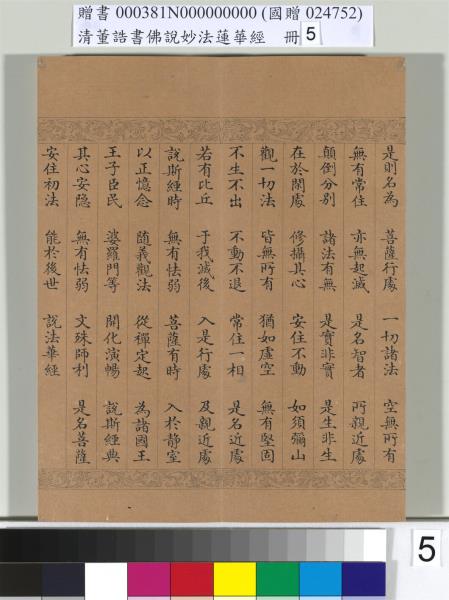 贈書 000381N000000000 (國贈 024752)
清董誥書佛說妙法蓮華經 冊 5
是則名為 菩薩行處 一切諸法 空無所有
無有常住 亦無起滅 是名智者 所親近處
顛倒分別 諸法有無 是實非實 是生非生
在於閑處 修攝其心 安住不動 如須彌山
觀一切法 皆無所有 猶如虛空 無有堅固
不生不出 不動不退 常住一相 是名近處
若有比丘 于我滅後 入是行處 及親近處
說斯經時 無有怯弱 菩薩有時 入於靜室
以正憶念 隨義觀法 從禪定起 為諸國王
王子臣民 婆羅門等 開化演暢 說斯經典
其心安隱 無有怯弱 文殊師利 是名菩薩
安住初法 能於後世 說法華經
5